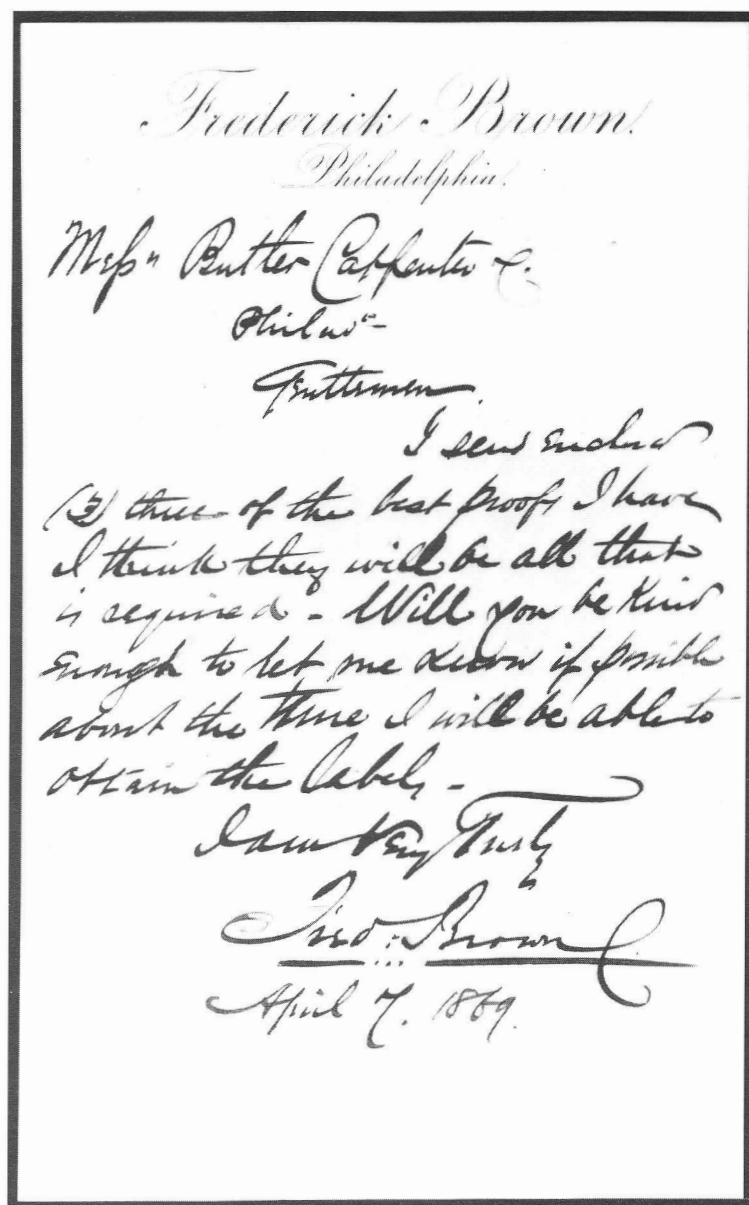 Frederick Brown.
Philadelphia.
Messrs Butler Carpenter &
Philada
Gentlemen
I send enclosed
(3) three of the best proofs I have
I think they will be all that
is required - Will you be kind
enough to let me know if possible
about the time I will be able to
obtain the labels -
I am Very Truly
Fred: Brown
April 7. 1869.